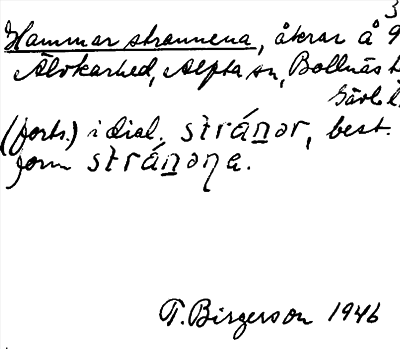 3
Hammarstrannena, åkrar å 9
Älvkarhed, Alfta sn, Bollnäs t
Gävleb. l.
(forts.) i dial. stránər, best.
form stránəna.
T. Birgerson 1946